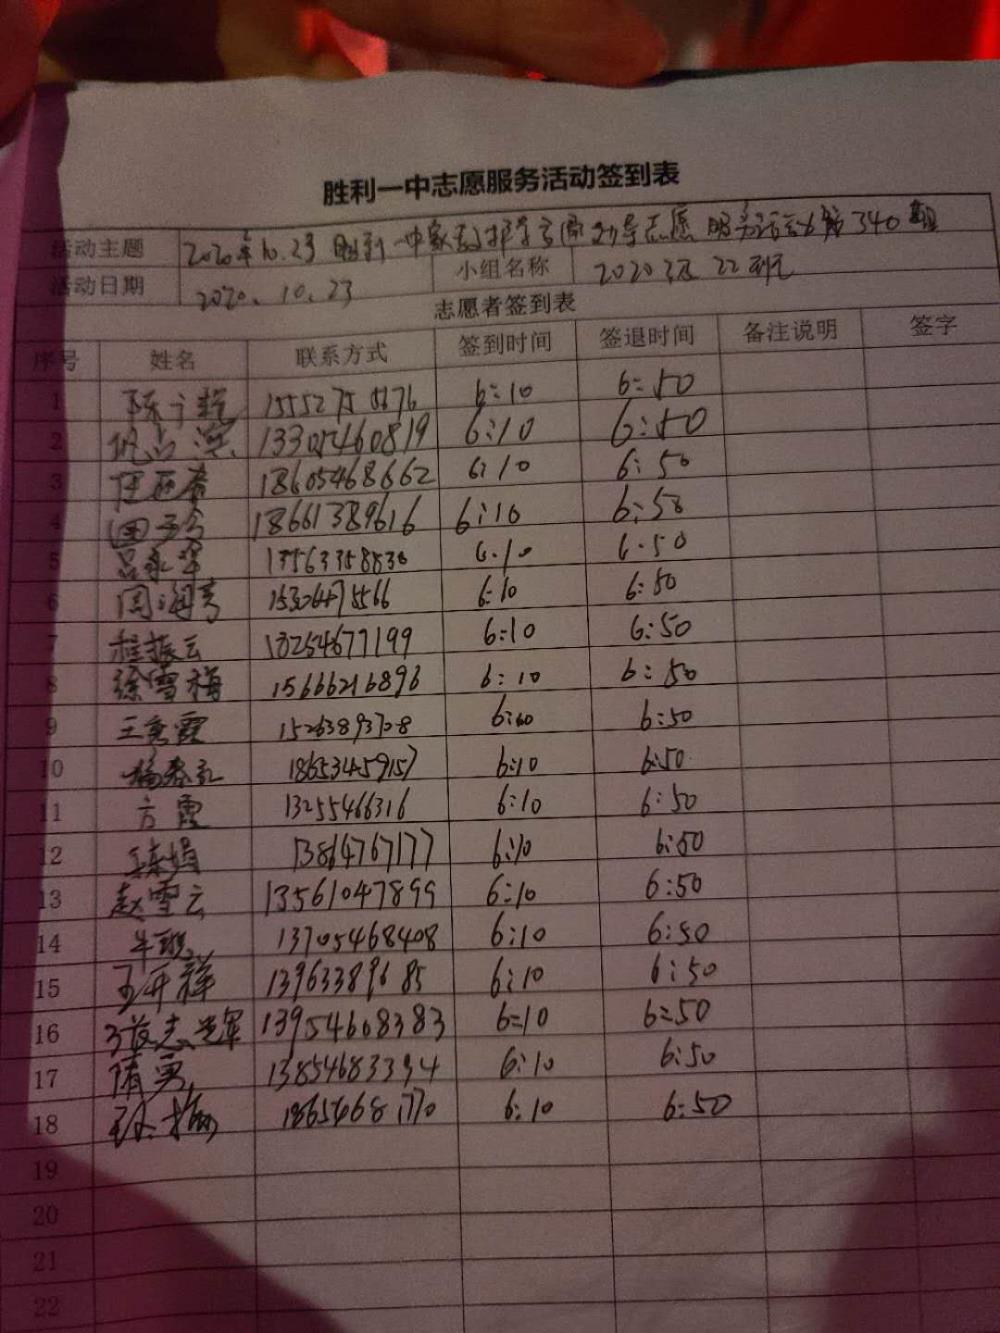 胜利一中志愿服务活动签到表
活动主题 2020年10.23胜利一中家 志愿服务活动第340期
活动日期 2020.10.23 小组名称 2020级22班
志愿者签到表
序号 姓名 联系方式 签到时间 签退时间 备注说明 签字
1 6:10 6:50
2 13305460819 6:10 6:50
3 18605468662 6:10 6:50
4 18661389616 6:10 6:50
5 6.10 6.50
6 周海青 6:10 6:50
7 程振云 18254677199 6:10 6:50
8 徐雪梅 15666216896 6:10 6:50
9 王秀霞 15263893708 6:10 6:50
10 杨春红 18653459157 6:10 6:50
11 方霞 13255466316 6:10 6:50
12 13864767177 6:10 6:50
13 赵雪云 13561047899 6:10 6:50
14 13705468408 6:10 6:50
15 王开祥 13963389685 6:10 6:50
16 志辉 13954608383 6=10 6=50
17 隋勇 13854683394 6:10 6:50
18 6:10 6:50
19
20
21
22